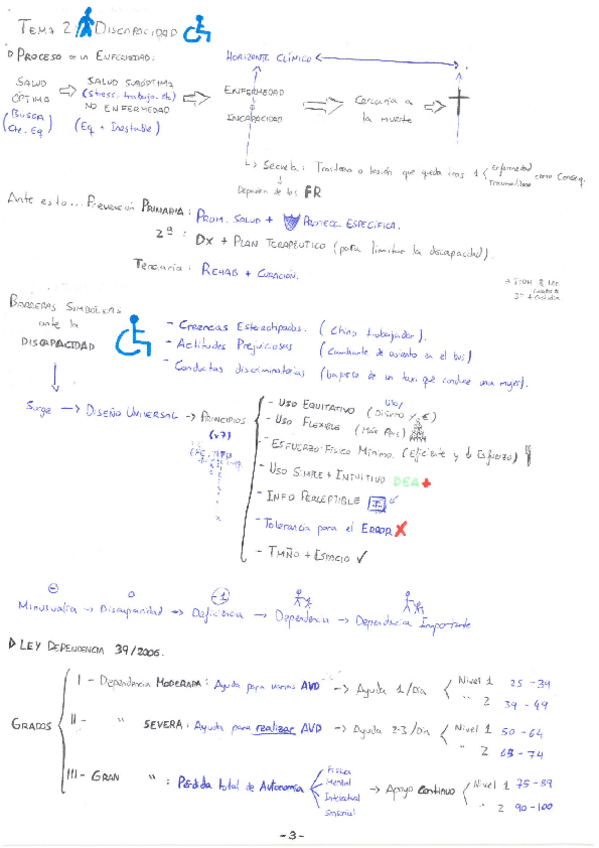 TEMA 2: DISCAPACIDAD
PROCESO DE LA ENFERMEDAD:
HORIZONTE CLÍNICO
SALUD ÓPTIMA
(BUSCA Cte. Eq)
SALUD SUBÓPTIMA
(Stress, trabajo, etc)
NO ENFERMEDAD
(Eq + Inestable)
ENFERMEDAD
o
INCAPACIDAD
Cercanía a
la muerte
Secuela: Trastorno o lesión que queda tras 1 Enfermedad
Traumatismo
como Conseq.
Dependen de los FR
Ante esto... Prevención PRIMARIA: PROM. SALUD + PROTECC. ESPECÍFICA.
2ª: Dx + PLAN TERAPÉUTICO (para limitar la discapacidad).
Terciaria: REHAB + CURACIÓN.
BARRERAS SIMBÓLICAS
ante la
DISCAPACIDAD
- Creencias Estereotipadas. (Chino trabajador).
- Actitudes Prejuiciosas (Cambiarte de asiento en el bus)
- Conductas discriminatorias (bajarse de un taxi que conduce una mujer).
Surge → DISEÑO UNIVERSAL → PRINCIPIOS
(x7)
- USO EQUITATIVO (Diseño y €)
- USO FLEXIBLE
- ESFUERZO FÍSICO MÍNIMO. (Eficiente y ↓ Esfuerzo)
- USO SIMPLE + INTUITIVO DEA +
- INFO PERCEPTIBLE
- Tolerancia para el ERROR X
- TMÑO + ESPACIO ✓
Minusvalía → Discapacidad → Deficiencia → Dependencia → Dependencia Importante
LEY DEPENDENCIA 39/2006.
GRADOS
I - Dependencia MODERADA: Ayuda para varias AVD → Ayuda 1/Día Nivel 1 25 - 39
" 2 39 - 49
II - " SEVERA: Ayuda para realizar AVD → Ayuda 2-3/Día Nivel 1 50 - 64
" 2 65 - 74
III - GRAN " : Pérdida total de Autonomía Física
Mental
Intelectual
Sensorial
→ Apoyo continuo Nivel 1 75 - 89
" 2 90 - 100
- 3 -